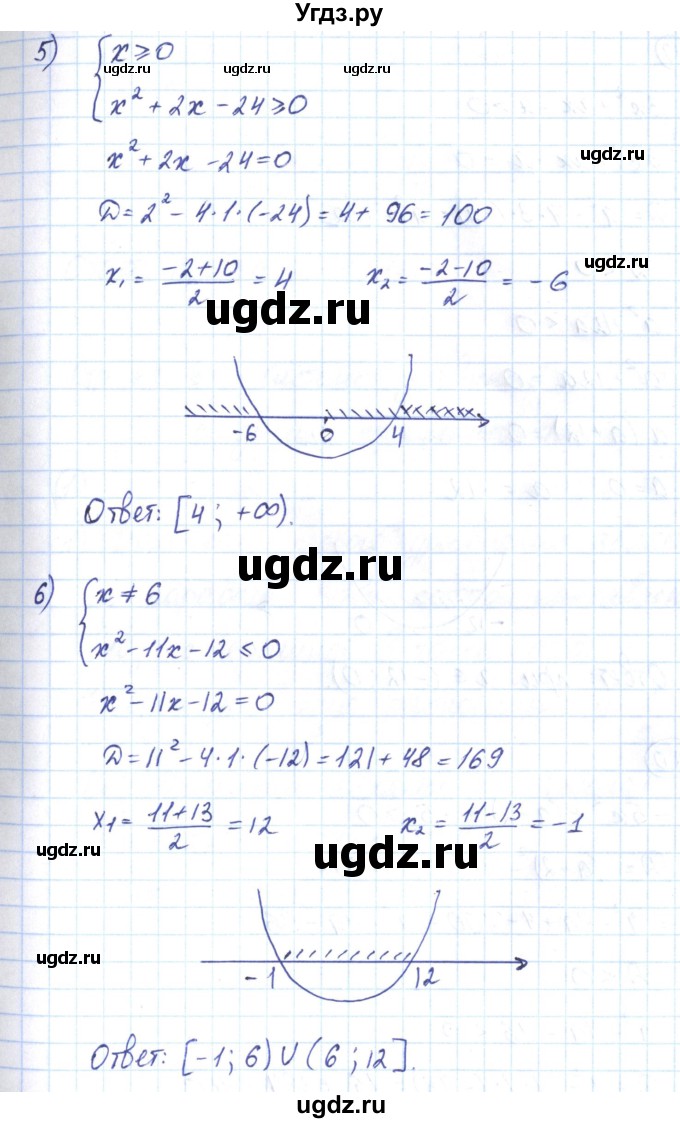 Угдз.ру
5) { x ⩾ 0
ugdz.ru ugdz.ru ugdz.ru
x² + 2x - 24 ⩾ 0
x² + 2x - 24 = 0
ugdz.ru
D = 2² - 4·1·(-24) = 4 + 96 = 100
ugdz.ru
x₁ = (-2+10)/2 = 4 x₂ = (-2-10)/2 = -6
ugdz.ru
-6 0 4
Ответ: [4; +∞).
ugdz.ru
6) { x ≠ 6
x² - 11x - 12 ⩽ 0
x² - 11x - 12 = 0
D = 11² - 4·1·(-12) = 121 + 48 = 169
x₁ = (11+13)/2 = 12 x₂ = (11-13)/2 = -1
ugdz.ru ugdz.ru
ugdz.ru ugdz.ru
-1 12
Ответ: [-1; 6) ∪ (6; 12].
ugdz.ru